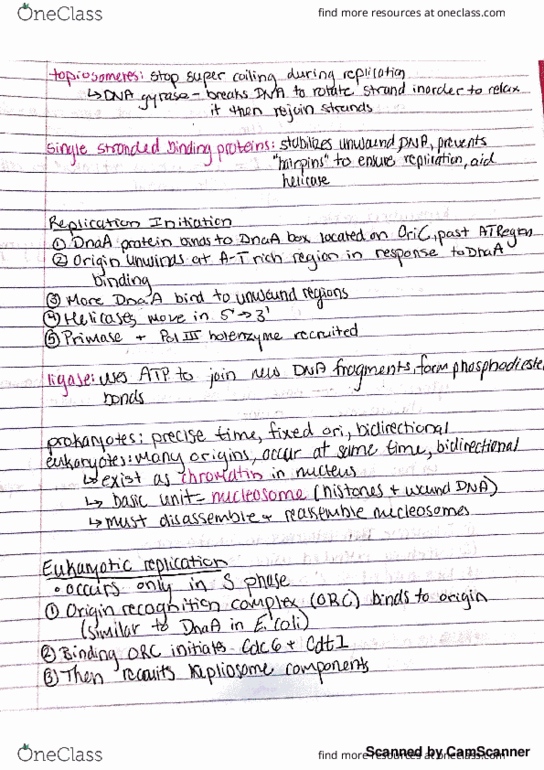 OneClass
find more resources at oneclass.com
topiosometes: stop super coiling during replication
↳ DNA gyrase - breaks DNA to rotate strand inorder to relax
it then rejoin strands
single stranded binding proteins: stabilizes unwound DNA, prevents
"hairpins" to ensure replication, aid
helicase
Replication Initiation
① DnaA protein binds to DnaA box located on OriC, past AT Region
② Origin unwinds at A-T rich region in response to DnaA
binding
③ More DnaA bind to unwound regions
④ Helicases move in 5' → 3'
⑤ Primase + Pol III holenzyme recruited
ligase: uses ATP to join new DNA fragments, form phosphodiester
bonds
prokaryotes: precise time, fixed ori, bidirectional
eukaryotes: many origins, occur at same time, bidirectional
↳ exist as chromatin in nucleus
↳ basic unit = nucleosome (histones + wound DNA)
↳ must disassemble + reassemble nucleosomes
Eukaryotic replication
• occurs only in S phase
① Origin recognition complex (ORC) binds to origin
(similar to DnaA in E. coli)
② Binding ORC initiates Cdc6 + Cdt1
③ Then recruits repliosome components
OneClass
find more resources at oneclass.com
Scanned by CamScanner